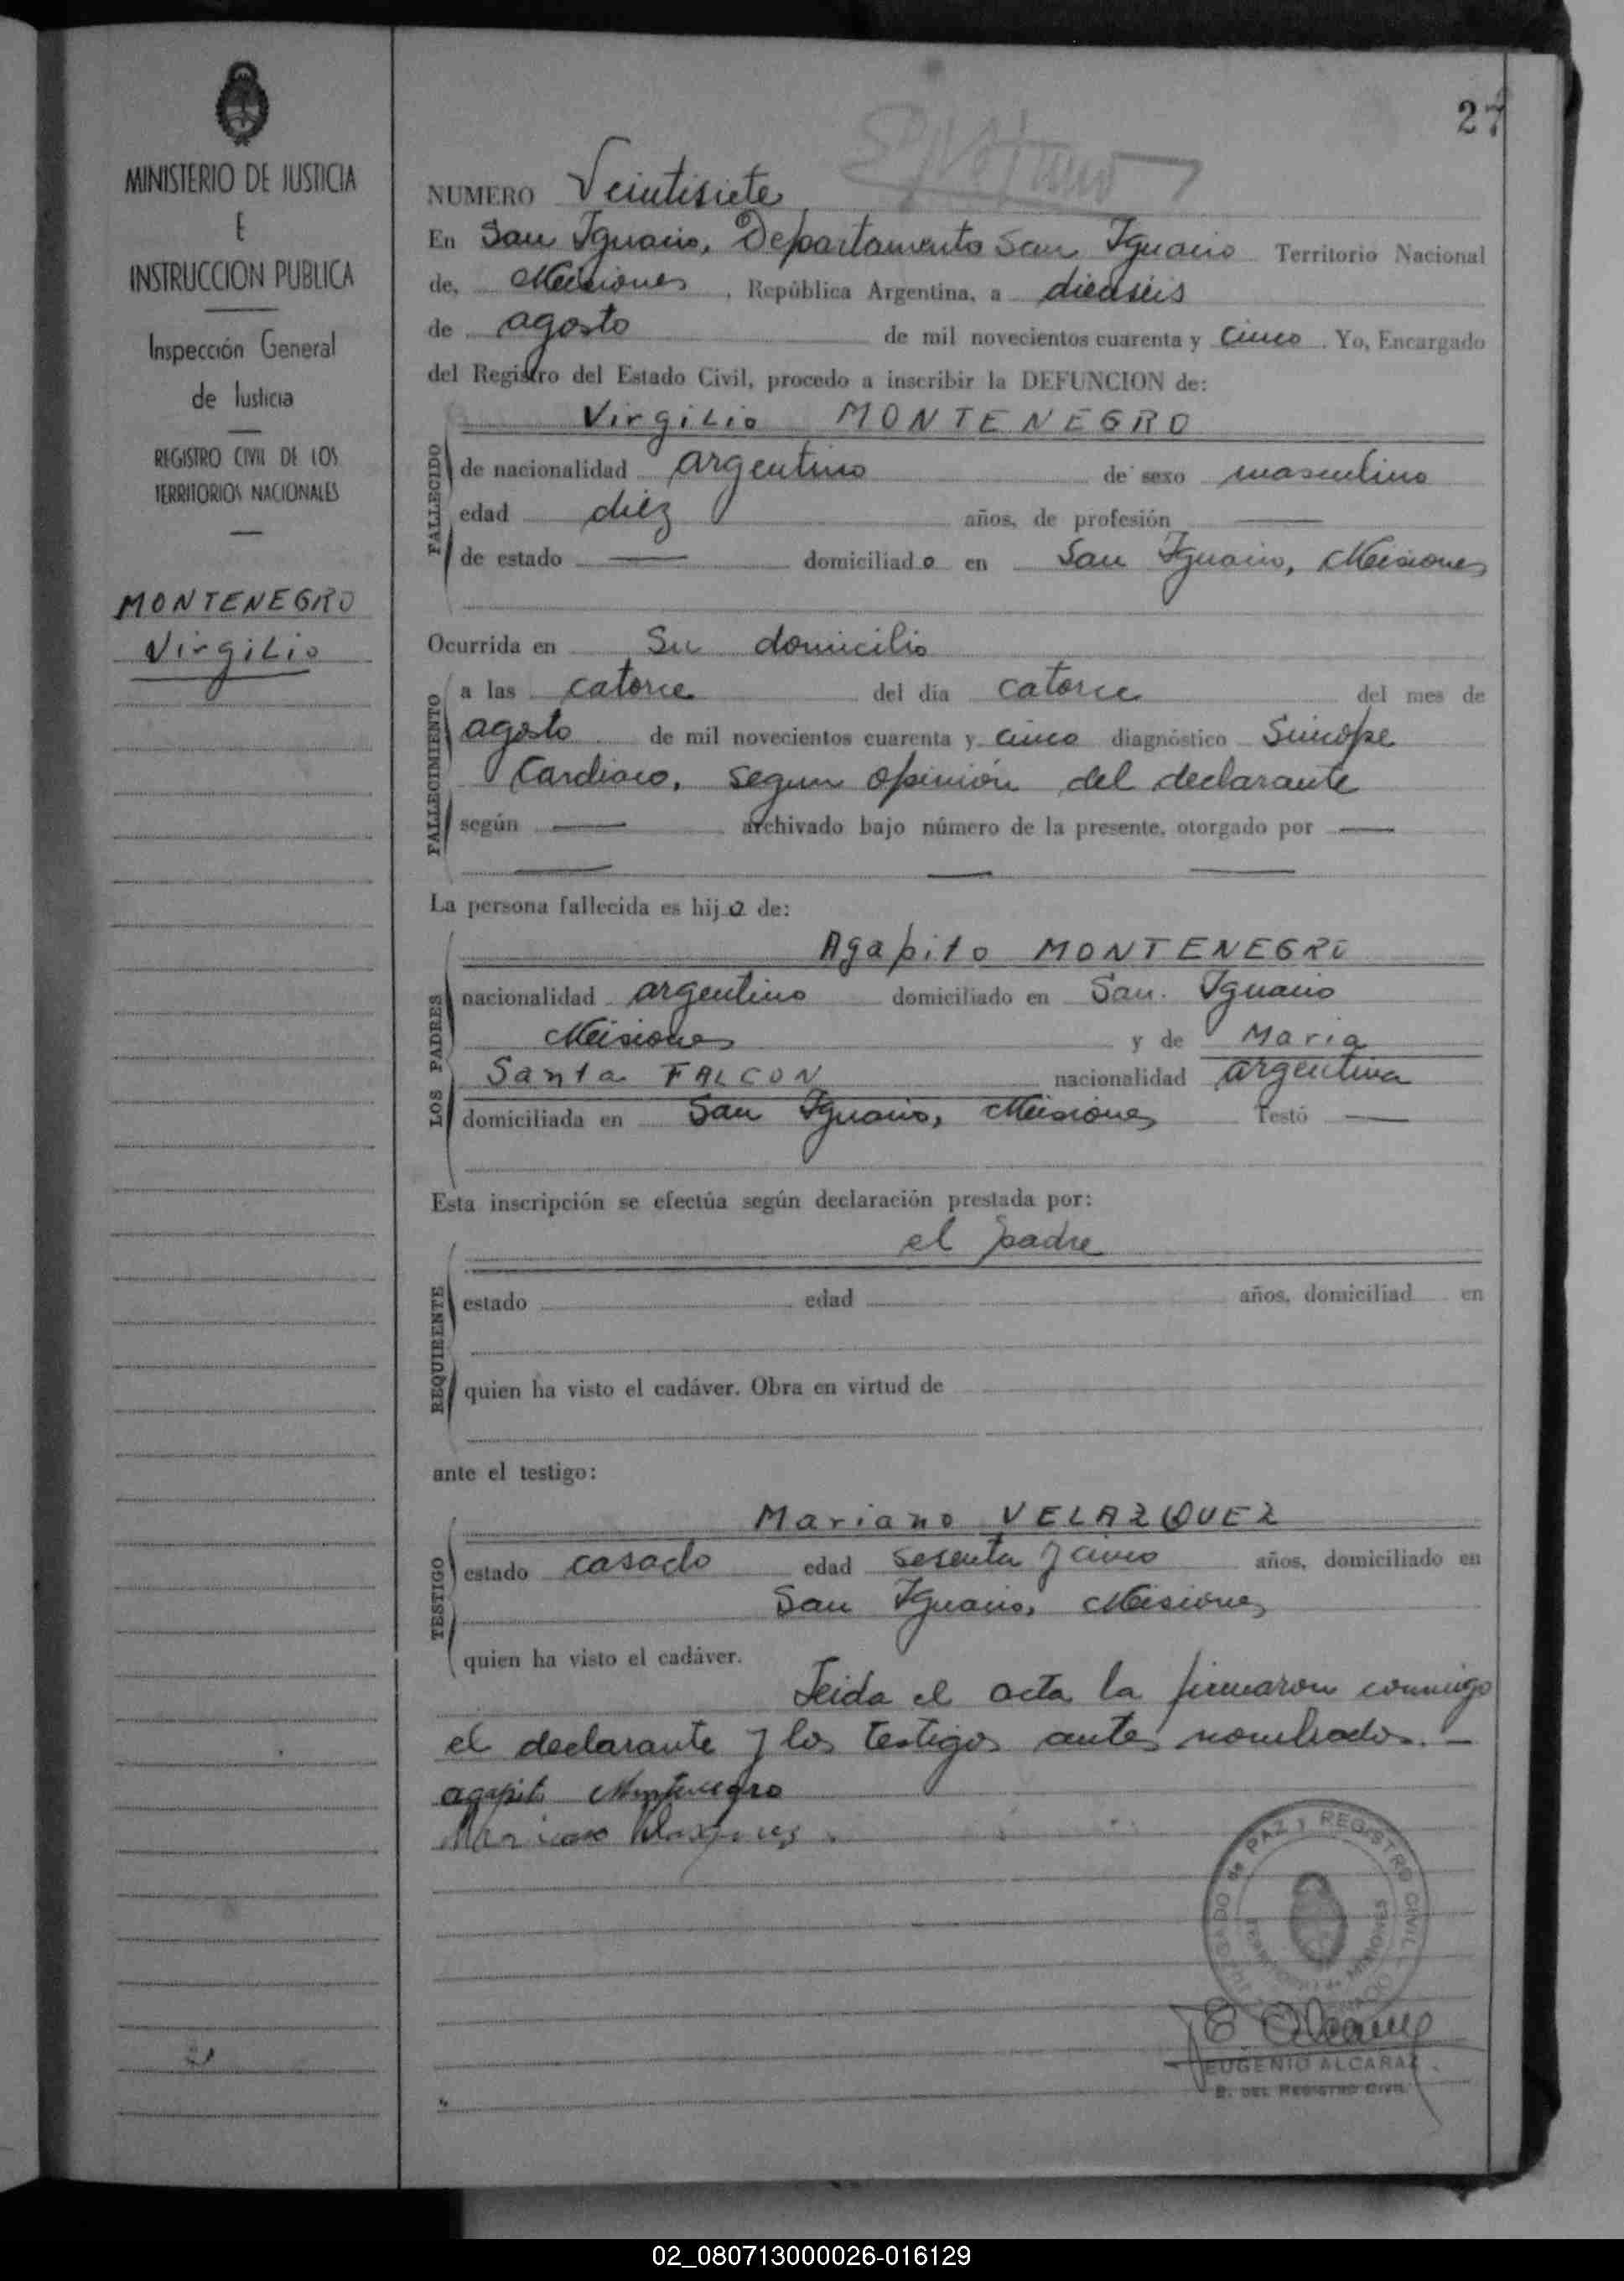 27
MINISTERIO DE JUSTICIA
E
INSTRUCCION PUBLICA
Inspección General
de Justicia
REGISTRO CIVIL DE LOS
TERRITORIOS NACIONALES
MONTENEGRO
Virgilio
NUMERO Veintisiete
En San Ignacio, Departamento San Ignacio Territorio Nacional
de, Misiones, República Argentina, a dieciséis
de agosto de mil novecientos cuarenta y cinco. Yo, Encargado
del Registro del Estado Civil, procedo a inscribir la DEFUNCION de:
Virgilio MONTENEGRO
FALLECIDO
de nacionalidad argentino de sexo masculino
edad diez años, de profesión —
de estado — domiciliado en San Ignacio, Misiones
Ocurrida en Su domicilio
FALLECIMIENTO
a las catorce del día catorce del mes de
agosto de mil novecientos cuarenta y cinco diagnóstico Síncope
Cardiaco, segun opinión del declarante
según — archivado bajo número de la presente, otorgado por —
— — —
La persona fallecida es hijo de:
LOS PADRES
Agapito MONTENEGRO
nacionalidad argentino domiciliado en San Ignacio
Misiones y de Maria
Santa FALCON nacionalidad argentina
domiciliada en San Ignacio, Misiones Testó —
Esta inscripción se efectúa según declaración prestada por:
REQUIRENTE
el padre
estado edad años, domiciliad en
quien ha visto el cadáver. Obra en virtud de
ante el testigo:
TESTIGO
Mariano VELAZQUEZ
estado casado edad sesenta y cinco años, domiciliado en
San Ignacio, Misiones
quien ha visto el cadáver.
Leida el acta la firmaron conmigo
el declarante y los testigos antes nombrados. —
agapito Montenegro
Mariano Velazquez
JUZGADO de PAZ y REGISTRO CIVIL
MISIONES
E Alcaraz
EUGENIO ALCARAZ
E. DEL REGISTRO CIVIL
02_080713000026-016129